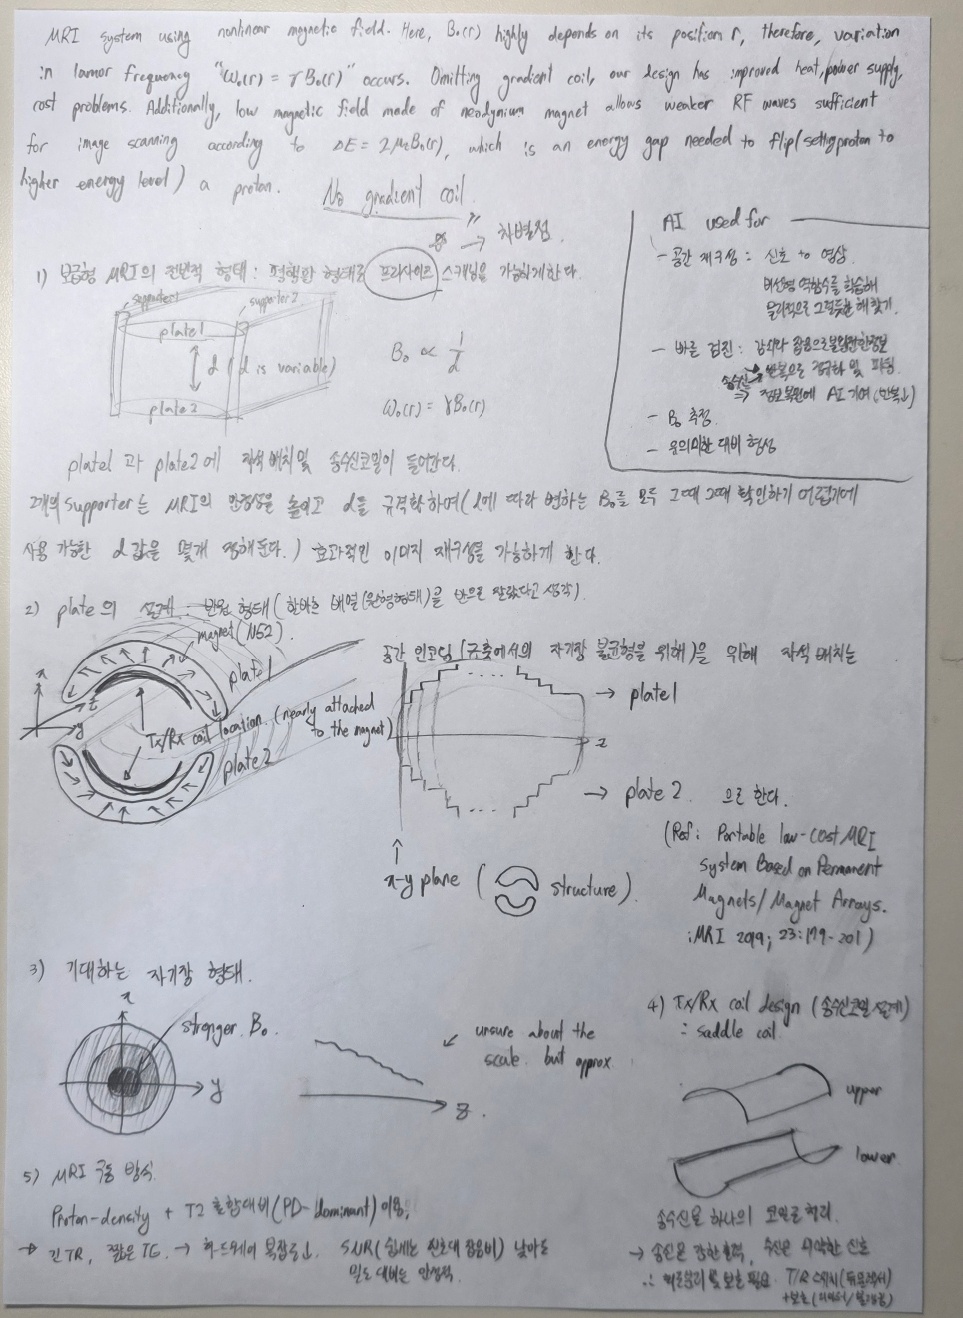 MRI system using nonlinear magnetic field. Here, B₀(r) highly depends on its position r, therefore, variation
in lamor frequency "ω₀(r) = γB₀(r)" occurs. Omitting gradient coil, our design has improved heat, power supply,
cost problems. Additionally, low magnetic field made of neodynium magnet allows weaker RF waves sufficient
for image scanning according to ΔE = 2μB₀(r), which is an energy gap needed to flip(setting proton to
higher energy level) a proton.
No gradient coil
→ 차별점.
1) 보급형 MRI의 전반적 형태: 평행한 형태로 프리사이즈 스캐닝을 가능하게 한다.
supporter1
supporter2
plate1
d (d is variable)
plate2
B₀ ∝ 1/d
ω₀(r) = γB₀(r)
AI used for
- 공간 재구성: 신호 to 영상
비선형 역함수를 학습해
물리적으로 그럴듯한 해 찾기.
- 빠른 검진: 감쇠와 잡음으로 불완전한 정보
송수신 반복으로 평균화 및
⇒ 정보복원에 AI 기여(반복↓)
- B₀ 측정
- 유의미한 대비 형성
plate1 과 plate2에 자석 배치 및 송수신코일이 들어간다.
2개의 supporter는 MRI의 안정성을 높이고 d를 규격화하여(d에 따라 변하는 B₀를 모두 그때 그때 확인하기 어렵기에
사용 가능한 d값을 몇개 정해둔다.) 효과적인 이미지 재구성을 가능하게 한다.
2) plate의 설계: 반원 형태(할바흐 배열(원형형태)을 반으로 잘랐다고 생각).
magnet(N52).
plate1
x
z
y
Tx/Rx coil location. (nearly attached
to the magnet)
plate2
공간 인코딩(규축에서의 자기장 불균형을 위해)을 위해 자석 배치는
→ plate1
z
→ plate 2 으로 한다.
x-y plane ( structure).
(Ref: Portable low-cost MRI
System Based on Permanent
Magnets/Magnet Arrays.
:MRI 2019; 23:179-201)
3) 기대하는 자기장 형태.
x
stronger B₀
y
unsure about the
scale. but approx.
z.
4) Tx/Rx coil design (송수신코일 설계)
: saddle coil
upper
lower
송수신을 하나의 코일로 처리.
→ 송신은 강한 출력, 수신은 미약한 신호
∴ 분리 및 보호 필요. T/R 스위치
5) MRI 구동 방식.
Proton-density + T2 혼합대비(PD-dominant)이용,
→ 긴TR, 짧은 TE. → 하드웨어 복잡증↓. SNR(쉽게는 신호대 잡음비) 낮아도
밀도 대비는 안정적.